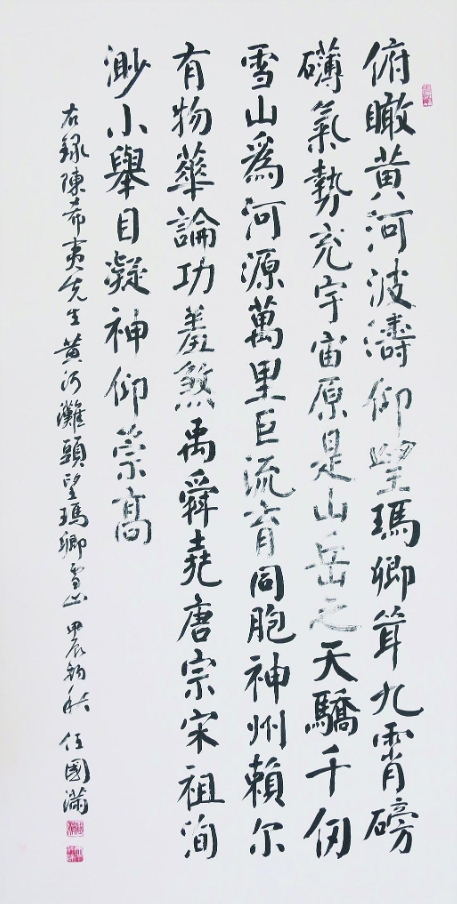 俯瞰黄河波濤仰望瑪卿聳九霄磅
礴氣勢充宇宙原是山岳之天驕千仞
雪山為河源萬里巨流育同胞神州賴尔
有物華論功羞煞禹舜堯唐宗宋祖洵
渺小舉目凝神仰崇高
右錄陳希夷先生黄河灘頭望瑪卿雪山 甲辰 秋 任國滿